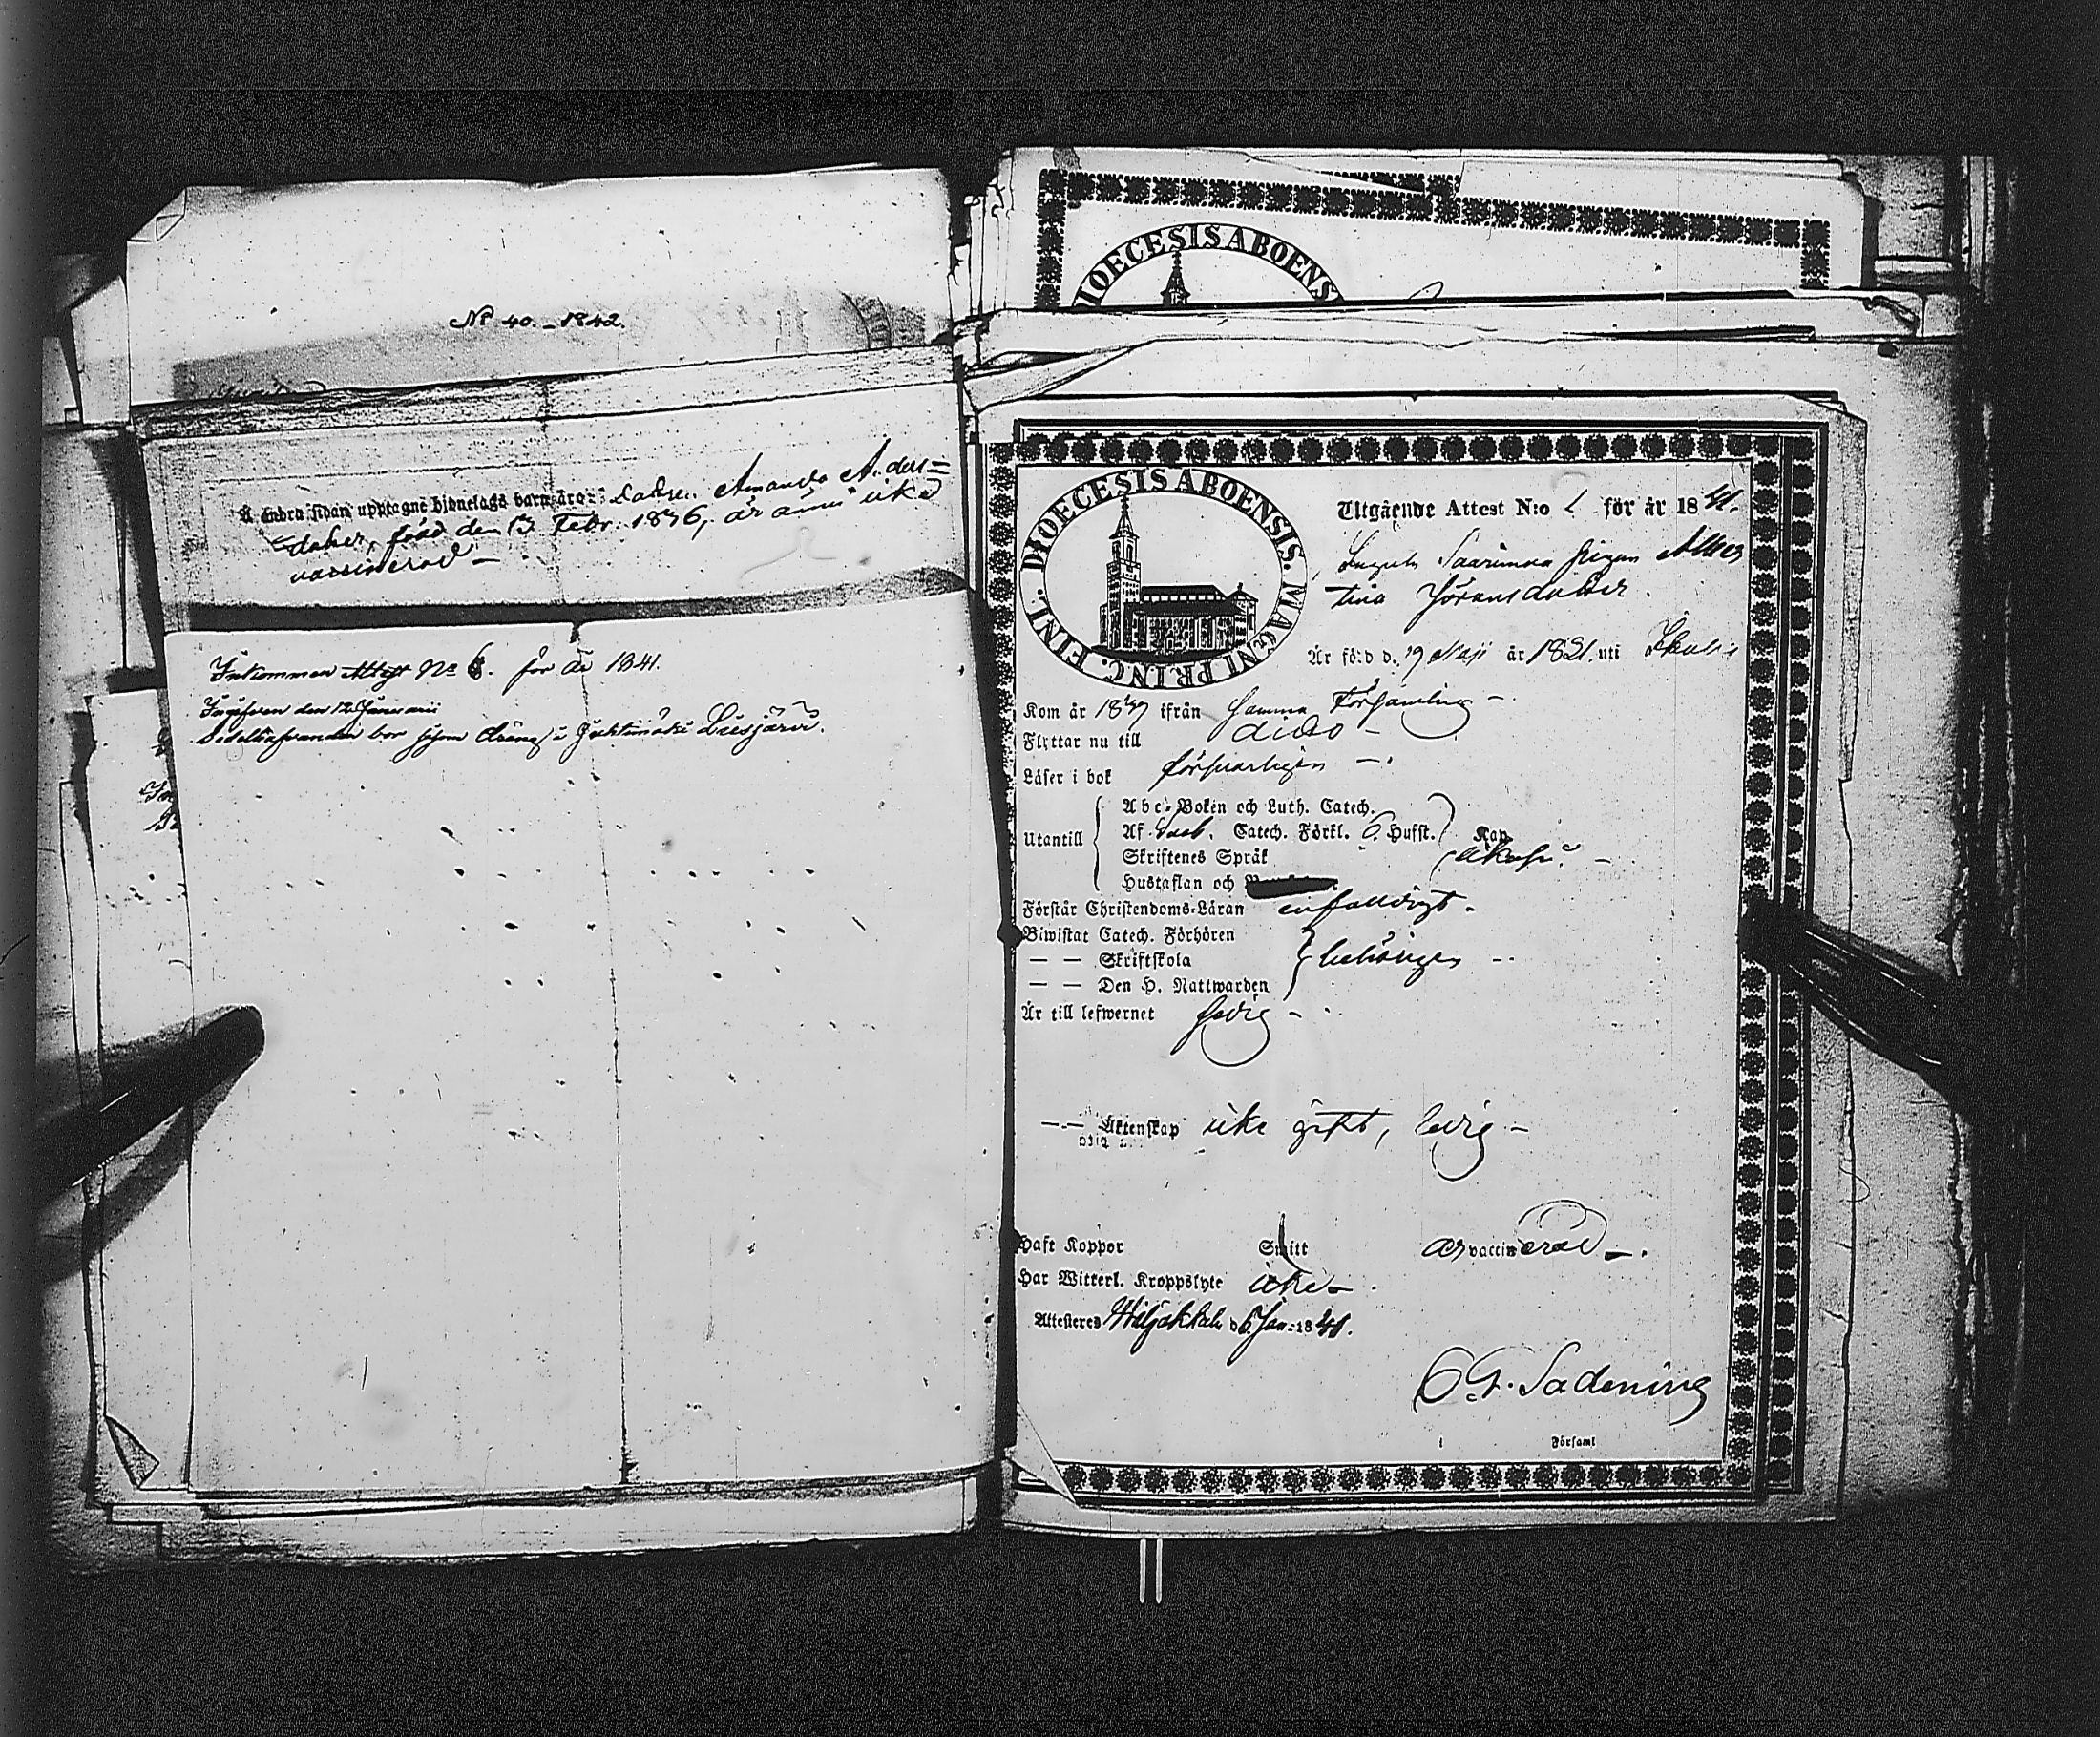 No 40. - 1842.
Å andra sidan upptagne hjonelags barn äro: Amanda Anders=
doter, född den 13 Febr. 1836, är ännu icke
vaccinerad -
Inkommen Attest No 6. för år 1841.
Ingifven den 12 Januarii
bor såsom dräng i Liesjärvi.
DIOECESIS ABOENS
DIOECESIS ABOENSIS. MAGNI PRINC. FINL.
Utgående Attest N:o 1 för år 1841.
Saarinen pigan Albes
tina Jöransdotter.
Är född d. 19 Maji år 1821. uti Ikalis
Kom år 1839 ifrån samma Församling -
Flyttar nu till dito -
Läser i bok försvarligen -
Utantill
Abc-Boken och Luth. Catech.
Af Sveb. Catech. Förkl. 6. Hufst. Kap
Skriftenes Språk
Hustaflan och
Förstår Christendoms-Läran enfaldigt -
Biwistat Catech. Förhören
— — Skriftskola behörigen -
— — Den H. Nattwarden
Är till lefwernet frdig -
— — Äktenskap icke gift, ledig -
Haft Koppor Smitt är vaccinerad -.
Har Witterl. Kroppslyte icke -
Attesteras Wiljakkala d 6 Jan. 1841.
C. G. Sadening
i Församl